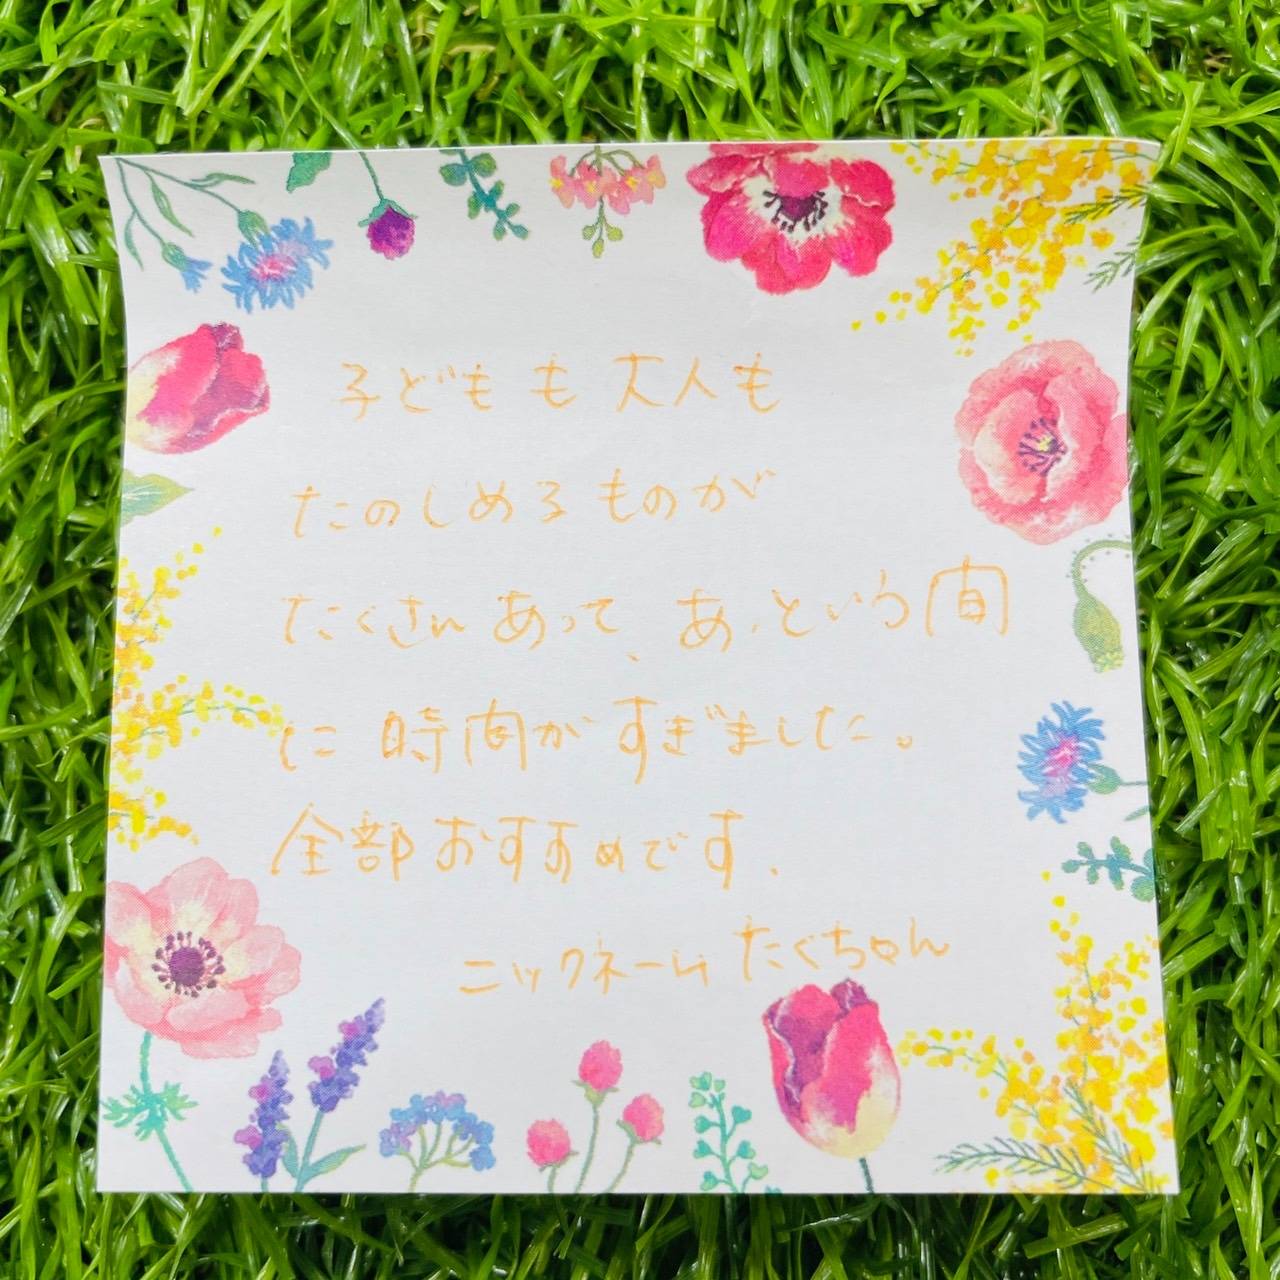 子どもも大人も
たのしめるものが
たくさんあって、あっという間
に時間がすぎました。
全部おすすめです、
ニックネーム たくちゃん